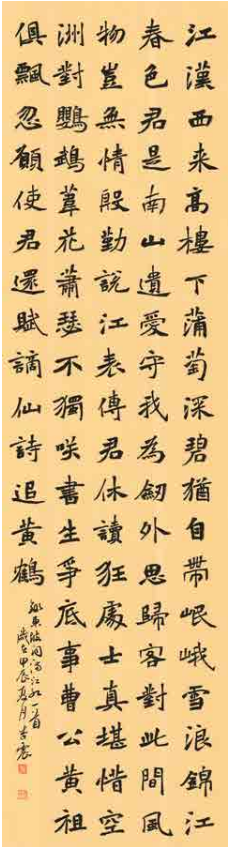 江漢西来高樓下蒲萄深碧猶自帶岷峨雪浪錦江
春色君是南山遺愛守我為劒外思歸客對此間風
物豈無情殷勤說江表傳君休讀狂處士真堪惜空
洲對鸚鵡葦花蕭瑟不獨咲書生爭底事曹公黃祖
俱飄忽願使君還賦謫仙詩追黃鶴
東坡詞满江红一首
歲在甲辰夏月李震